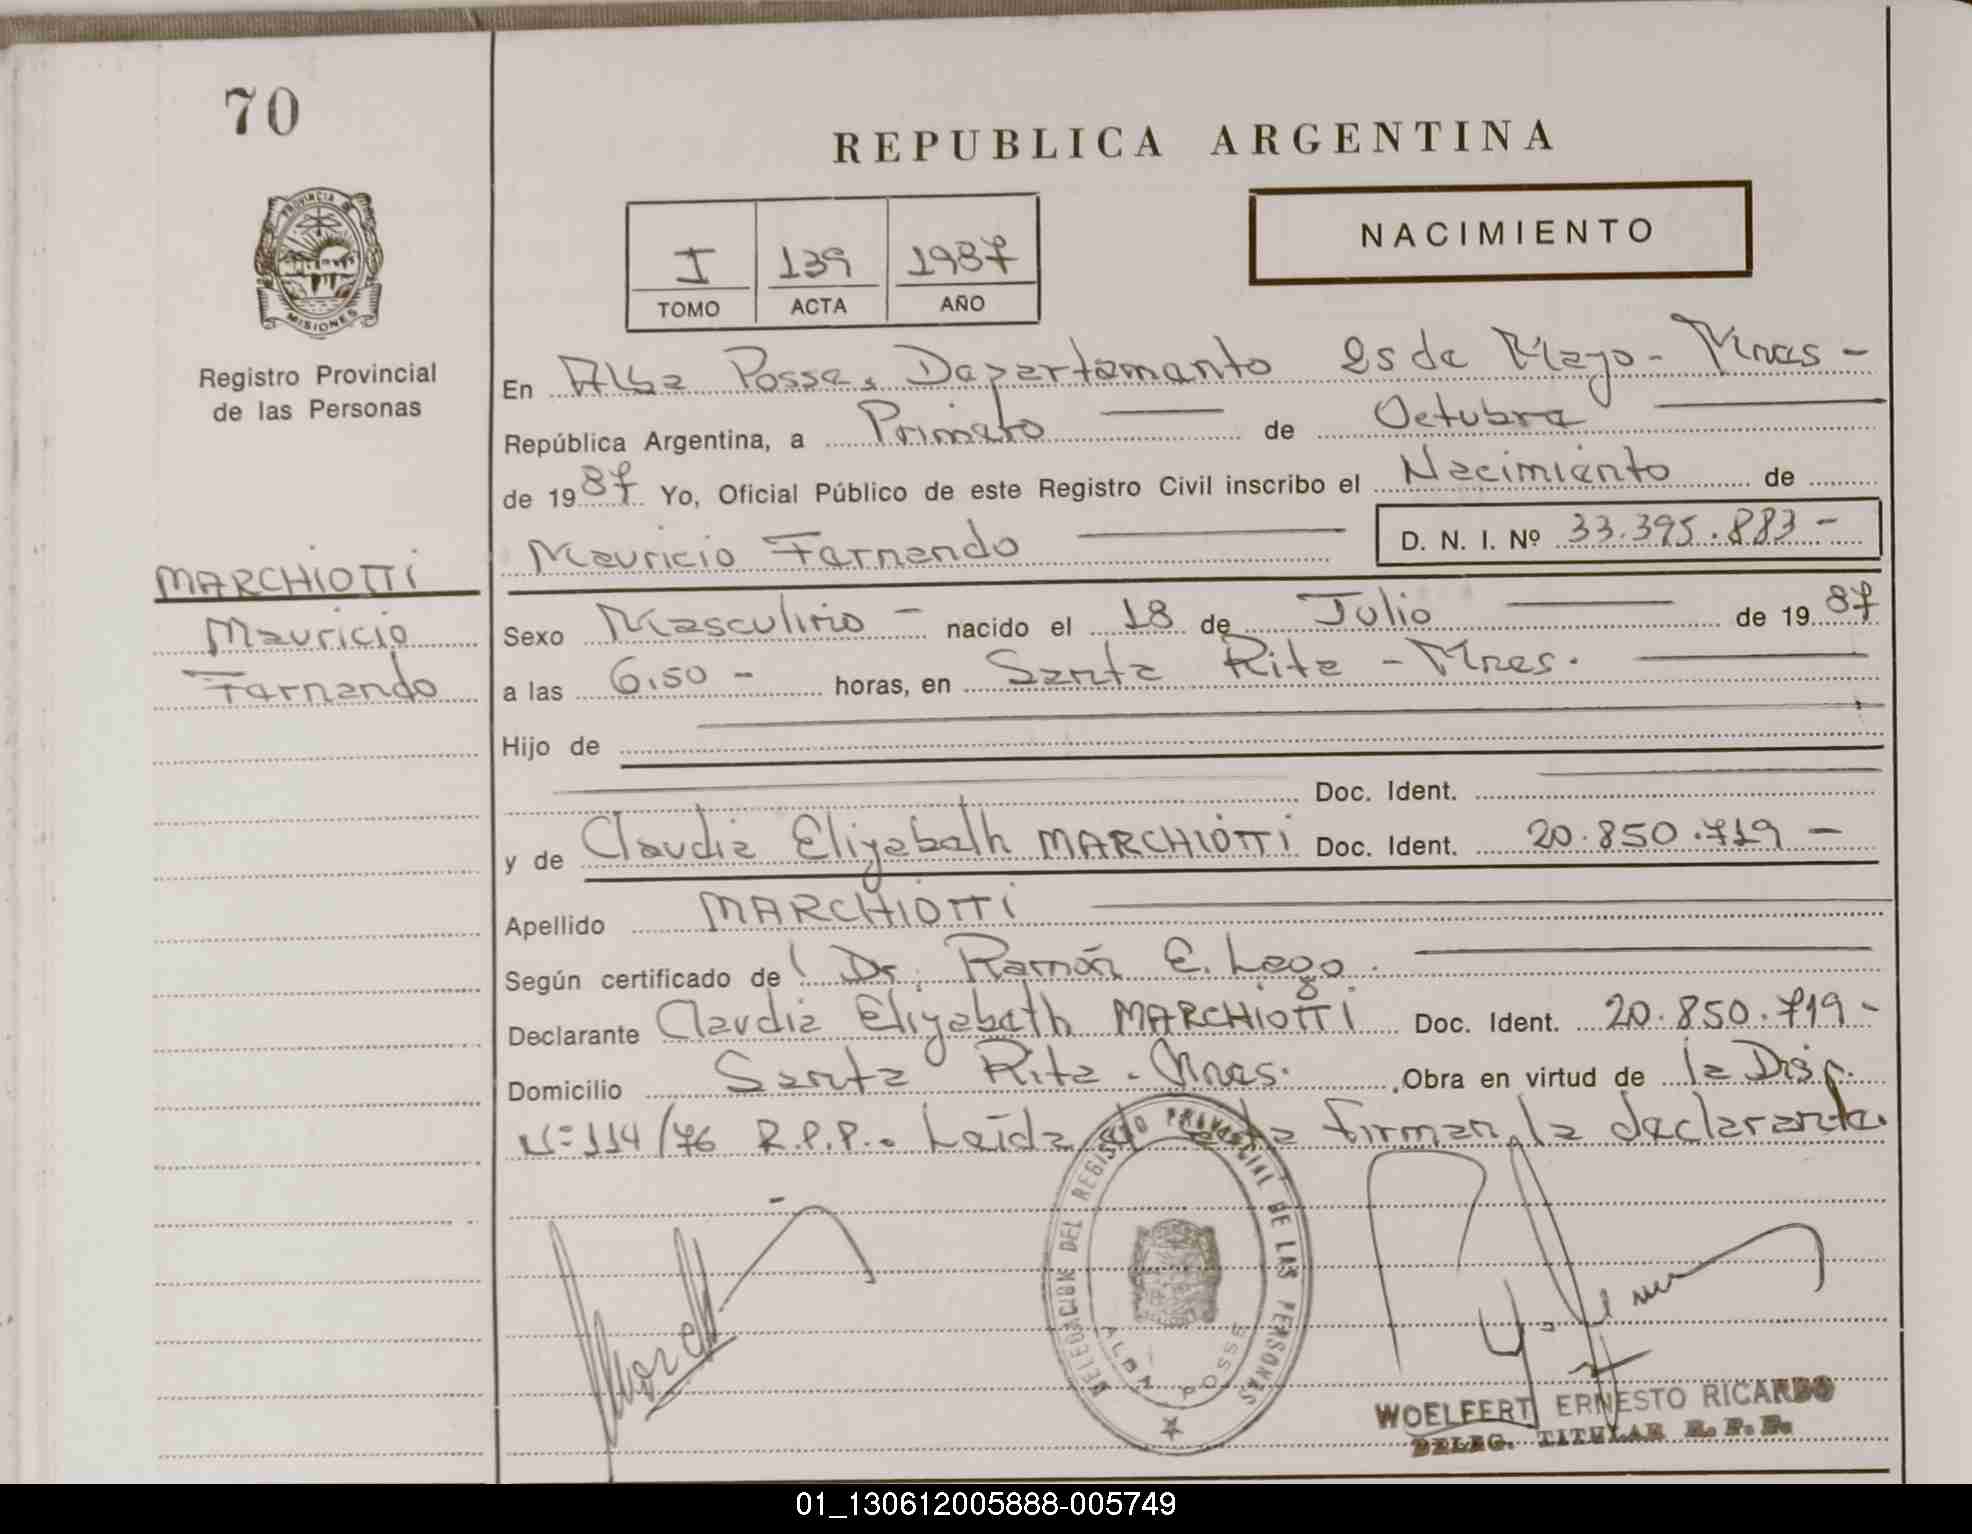 70
REPUBLICA ARGENTINA
NACIMIENTO
PROVINCIA DE
MISIONES
Registro Provincial
de las Personas
I 139 1987
TOMO ACTA AÑO
En Alba Posse, Departamento 25 de Mayo - Mnes -
República Argentina, a Primero de Octubre
de 1987 Yo, Oficial Público de este Registro Civil inscribo el Nacimiento de
Mauricio Fernando D. N. I. Nº 33.395.883 -
MARCHIOTTI
Mauricio
Fernando
Sexo Masculino - nacido el 18 de Julio de 1987
a las 6,50 - horas, en Santa Rita - Mnes.
Hijo de
Doc. Ident.
y de Claudia Elizabeth MARCHIOTTI Doc. Ident. 20.850.719 -
Apellido MARCHIOTTI
Según certificado de Dr. Ramón E. Lago.
Declarante Claudia Elizabeth MARCHIOTTI Doc. Ident. 20.850.719 -
Domicilio Santa Rita - Mnes. Obra en virtud de la Disp.
Nº 114/76 R.P.P. - Leída el acta firman, la declarante.
DELEGACION DEL REGISTRO PROVINCIAL DE LAS PERSONAS
ALBA POSSE
WOELFERT ERNESTO RICARDO
DELEG. TITULAR R. P. P.
01_130612005888-005749